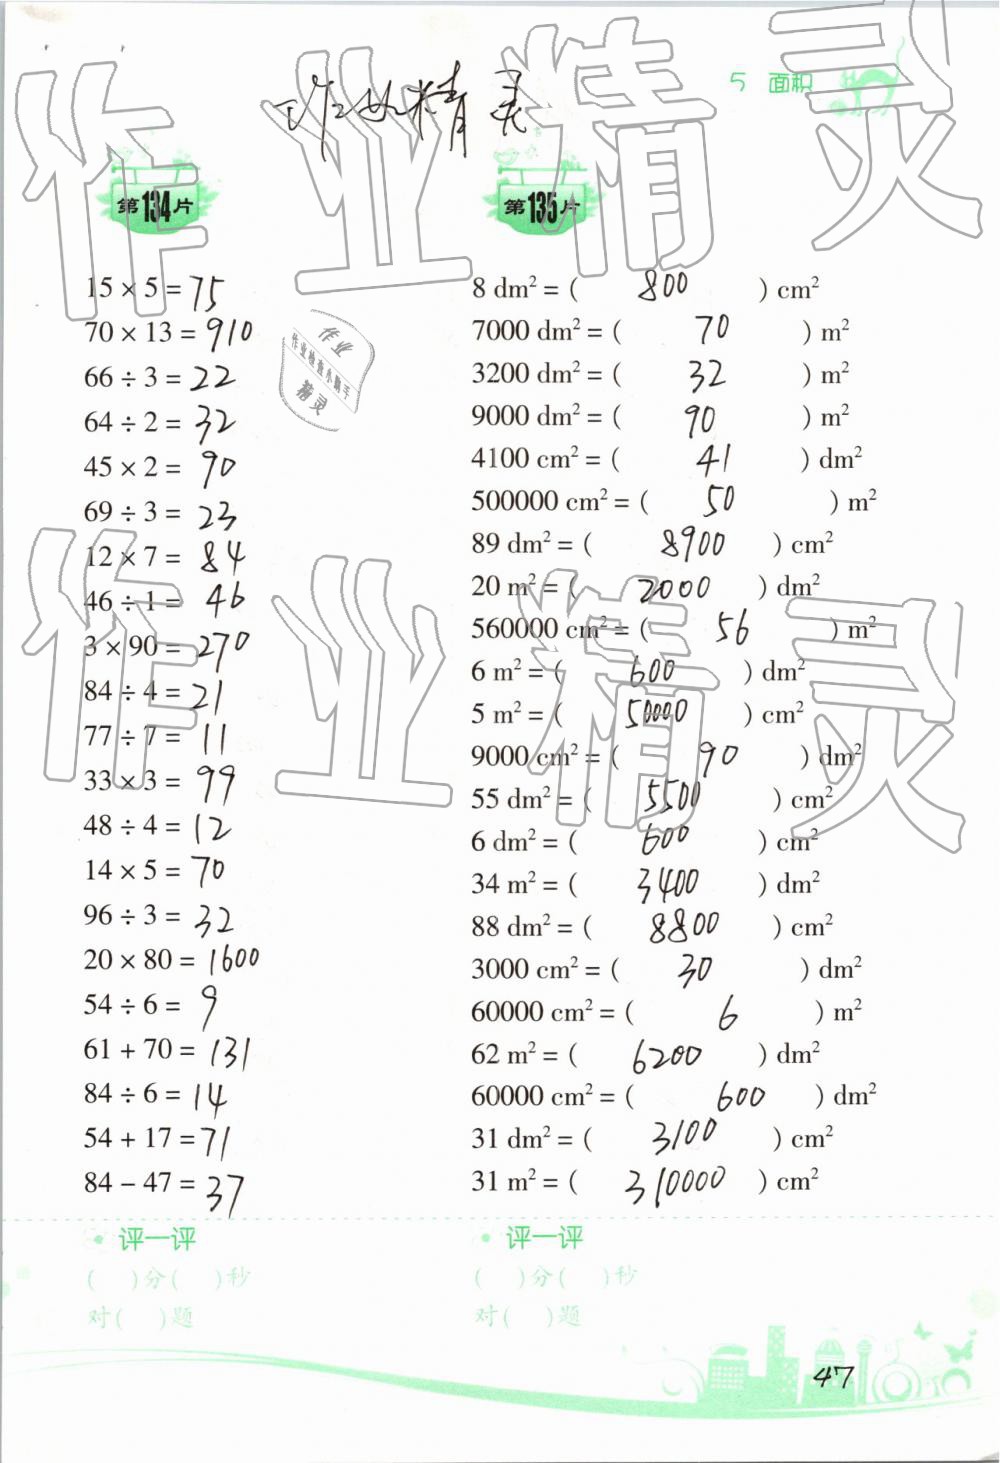 5 面积
作业精灵
第134片
15 × 5 = 75
70 × 13 = 910
66 ÷ 3 = 22
64 ÷ 2 = 32
45 × 2 = 90
69 ÷ 3 = 23
12 × 7 = 84
46 ÷ 1 = 46
3 × 90 = 270
84 ÷ 4 = 21
77 ÷ 7 = 11
33 × 3 = 99
48 ÷ 4 = 12
14 × 5 = 70
96 ÷ 3 = 32
20 × 80 = 1600
54 ÷ 6 = 9
61 + 70 = 131
84 ÷ 6 = 14
54 + 17 = 71
84 − 47 = 37
评一评
( )分( )秒
对( )题
第135片
8 dm² = ( 800 ) cm²
7000 dm² = ( 70 ) m²
3200 dm² = ( 32 ) m²
9000 dm² = ( 90 ) m²
4100 cm² = ( 41 ) dm²
500000 cm² = ( 50 ) m²
89 dm² = ( 8900 ) cm²
20 m² = ( 2000 ) dm²
560000 cm² = ( 56 ) m²
6 m² = ( 600 ) dm²
5 m² = ( 50000 ) cm²
9000 cm² = ( 90 ) dm²
55 dm² = ( 5500 ) cm²
6 dm² = ( 600 ) cm²
34 m² = ( 3400 ) dm²
88 dm² = ( 8800 ) cm²
3000 cm² = ( 30 ) dm²
60000 cm² = ( 6 ) m²
62 m² = ( 6200 ) dm²
60000 cm² = ( 600 ) dm²
31 dm² = ( 3100 ) cm²
31 m² = ( 310000 ) cm²
评一评
( )分( )秒
对( )题
47
作业
作业检查小助手
精灵
作业精灵
作业精灵